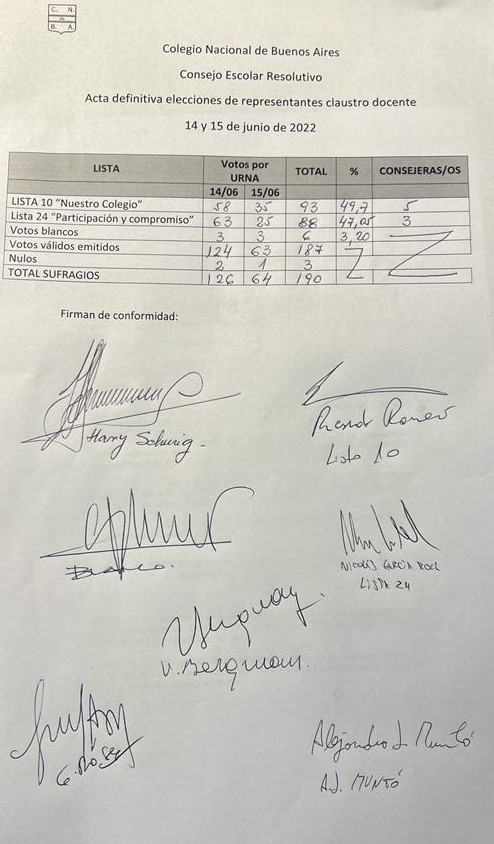 C. N.
de
B. A.
Colegio Nacional de Buenos Aires
Consejo Escolar Resolutivo
Acta definitiva elecciones de representantes claustro docente
14 y 15 de junio de 2022
LISTA Votos por URNA TOTAL % CONSEJERAS/OS
14/06 15/06
LISTA 10 “Nuestro Colegio” 58 35 93 49,7 5
Lista 24 “Participación y compromiso” 63 25 88 47,05 3
Votos blancos 3 3 6 3,20
Votos válidos emitidos 124 63 187
Nulos 2 1 3
TOTAL SUFRAGIOS 126 64 190
Firman de conformidad:
Harry Schurig
Romero
Lista 10
NICOLÁS GARCÍA ROEL
LISTA 24
V. Bergman
Alejandro J. Muntó
A.J. MUNTÓ